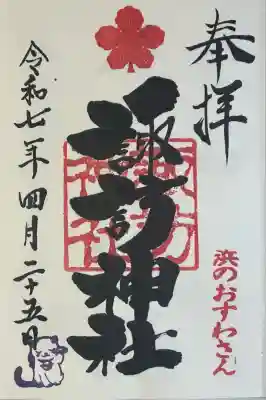 奉拝
浜のおすわさん
諏訪神社
諏訪神社
令和七年四月二十五日